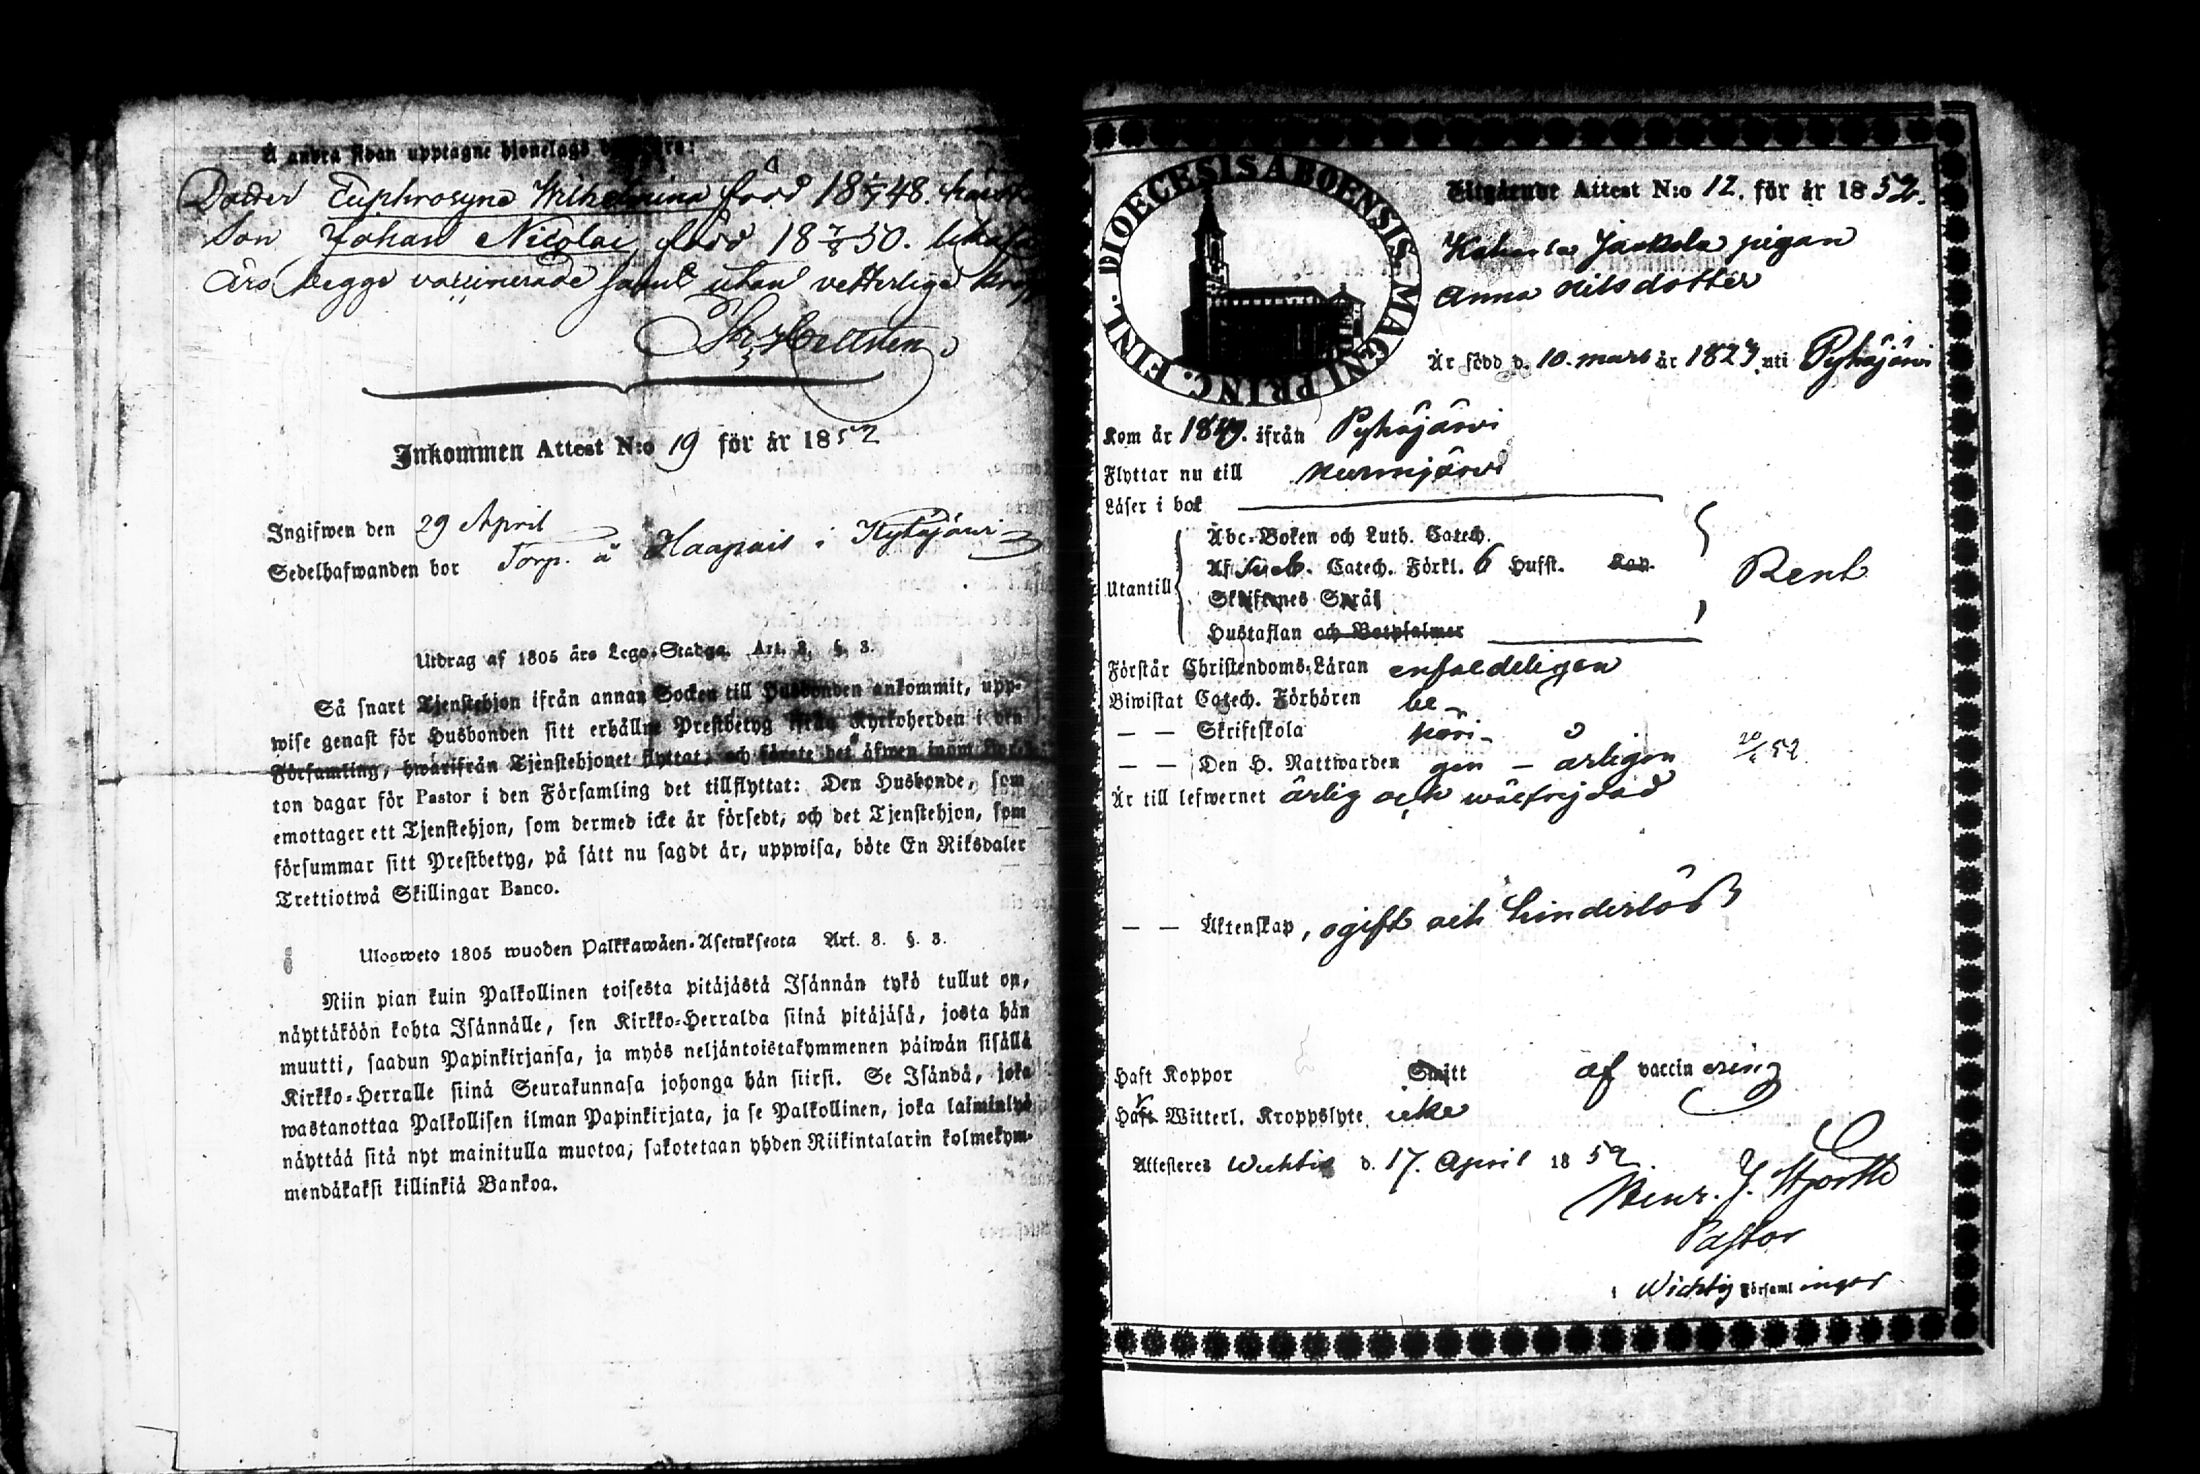 Å andra sidan upptagne hjonelags barn äro:
Dotter Euphrosyne Wilhelmina född 18 48.
Son Johan Nicolai född 18 7/8 50.
Ars begge vaccinerade samt utan vetterlige
Hellsten
Inkommen Attest N:o 19 för år 1852
Ingifwen den 29 April
Sedelhafwanden bor Torp. å Haapais i Hyhäjärwi
Utdrag af 1805 års Lego-Stadga. Art. 3. §. 3.
Så snart Tjenstehjon ifrån annan Socken till Husbonden ankommit, upp-
wise genast för Husbonden sitt erhållne Prestbetyg ifrån Kyrkoherden i den
Församling, hwarifrån Tjenstehjonet flyttat; och förete det äfwen inom fjor-
ton dagar för Pastor i den Församling det tillflyttat: Den Husbonde, som
emottager ett Tjenstehjon, som dermed icke är försedt, och det Tjenstehjon, som
försummar sitt Prestbetyg, på sätt nu sagdt är, uppwisa, böte En Riksdaler
Trettiotwå Skillingar Banco.
Ulosweto 1805 wuoden Palkkawäen-Asetuksesta Art. 3. §. 3.
Niin pian kuin Palkollinen toisesta pitäjästä Isännän tykö tullut on,
näyttäköön kohta Isännälle, sen Kirkko-Herralda siinä pitäjäsä, josta hän
muutti, saadun Papinkirjansa, ja myös neljäntoistakymmenen päiwän sisällä
Kirkko-Herralle siinä Seurakunnasa johonga hän siirsi. Se Isändä, joka
wastanottaa Palkollisen ilman Papinkirjata, ja se Palkollinen, joka laiminlyö
näyttää sitä nyt mainitulla muotoa, sakotetaan yhden Riikintalarin kolmekym-
mendäkaksi killinkiä Bankoa.
DIOECESIS ABOENSIS MAGNI PRINC. FINL.
Utgående Attest N:o 12. för år 1852.
Jaakola pigan
Anna Nilsdotter
Är född d. 10. mars år 1823. uti Pyhäjärwi
Kom år 1849. ifrån Pyhäjärwi
Flyttar nu till Nurmijärwi
Läser i bok
Abc-Boken och Luth. Catech.
Af Sveb. Catech. Förkl. 6 Hufst. Kap.
Utantill
Skriftenes Språk
Hustaflan och Botpsalmer
Rent
Förstår Christendoms-Läran enfaldeligen
Biwistat Catech. Förhören be-
— — Skriftskola höri-
— — Den H. Nattwarden gen - årligen 20/1 52
Är till lefwernet ärlig och wälfrejdad
— — Äktenskap, ogift och hinderlös
Haft Koppor Smitt af vaccinering
Haft Witterl. Kroppslyte icke
Attesteres Wichtis d. 17. April 1852.
Henr. J. Hjorth
Pastor
i Wichtis Församlingar